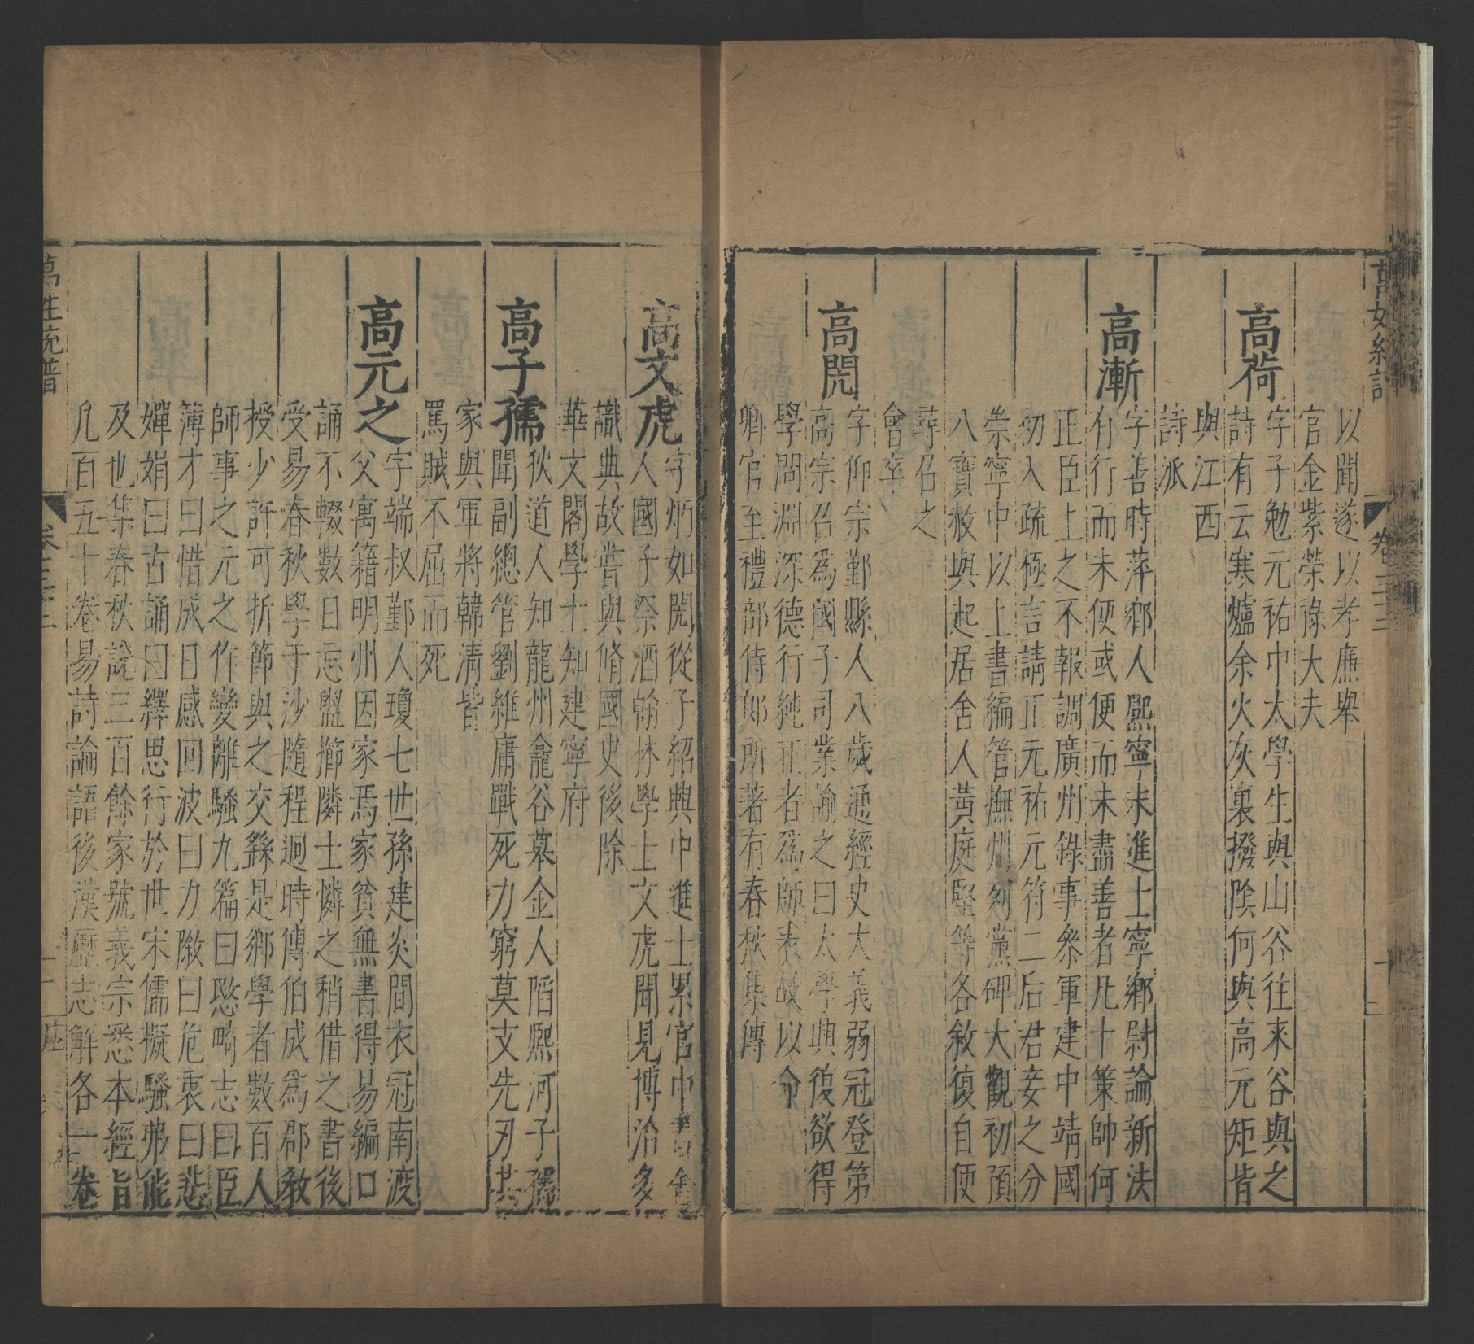 以聞遂以孝廉舉
官金紫榮祿大夫
高荷
字子勉元祐中太學生與山谷往来谷與之
詩有云寒爐余火灰裏撥陰何與高元矩皆
與江西
詩派
高漸
字善時萍鄉人熙寧末進士寧鄉尉論新法
有行而未便或便而未盡善者凡十策帥何
正臣上之不報調廣州錄事叅軍建中靖國
初入疏極言請正元祐元符二后君妾之分
崇寧中以上書編管撫州列黨碑大觀初預
八寶赦與起居舍人黃庭堅等各敘復自便
尋召之
會卒
高閌
字仰宗鄞縣人八歲通經史大義弱冠登第
高宗召為國子司業諭之曰太學興復欲得
學問淵深德行純正者為師表故以命
卿官至禮部侍郎所著有春秋集傳
高文虎
字炳如閌從子紹興中進士累官中書舍
人國子祭酒翰林學士文虎聞見博洽多
識典故嘗與脩國史後除
華文閣學士知建寧府
高子孺
狄道人知龍州龕谷寨金人陷熙河子孺
聞副總管劉維庸戰死力窮莫支先刃其
家與軍將韓清皆
罵賊不屈而死
高元之
字端叔鄞人瓊七世孫建炎間衣冠南渡
父寓籍明州因家焉家貧無書得易編口
誦不輟數日忘盥擳隣士憐之稍借之書後
受易春秋學于沙隨程迥時傅伯成為郡教
授少許可折節與之交繇是鄉學者數百人
師事之元之作變離騷九篇曰愍畸志曰臣
薄才曰惜成日感回波曰力陬曰危衷曰悲
嬋娟曰古誦曰繹思行於世宋儒擬騷弗能
及也集春秋說三百餘家號義宗悉本經旨
凡百五十卷易詩論語後漢歷志解各一卷
萬姓統譜